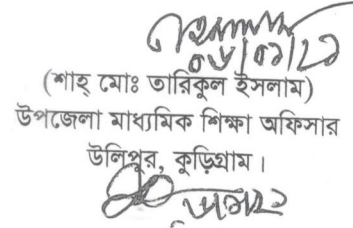 (শাহ্ মোঃ তারিকুল ইসলাম)
উপজেলা মাধ্যমিক শিক্ষা অফিসার
উলিপুর, কুড়িগ্রাম।